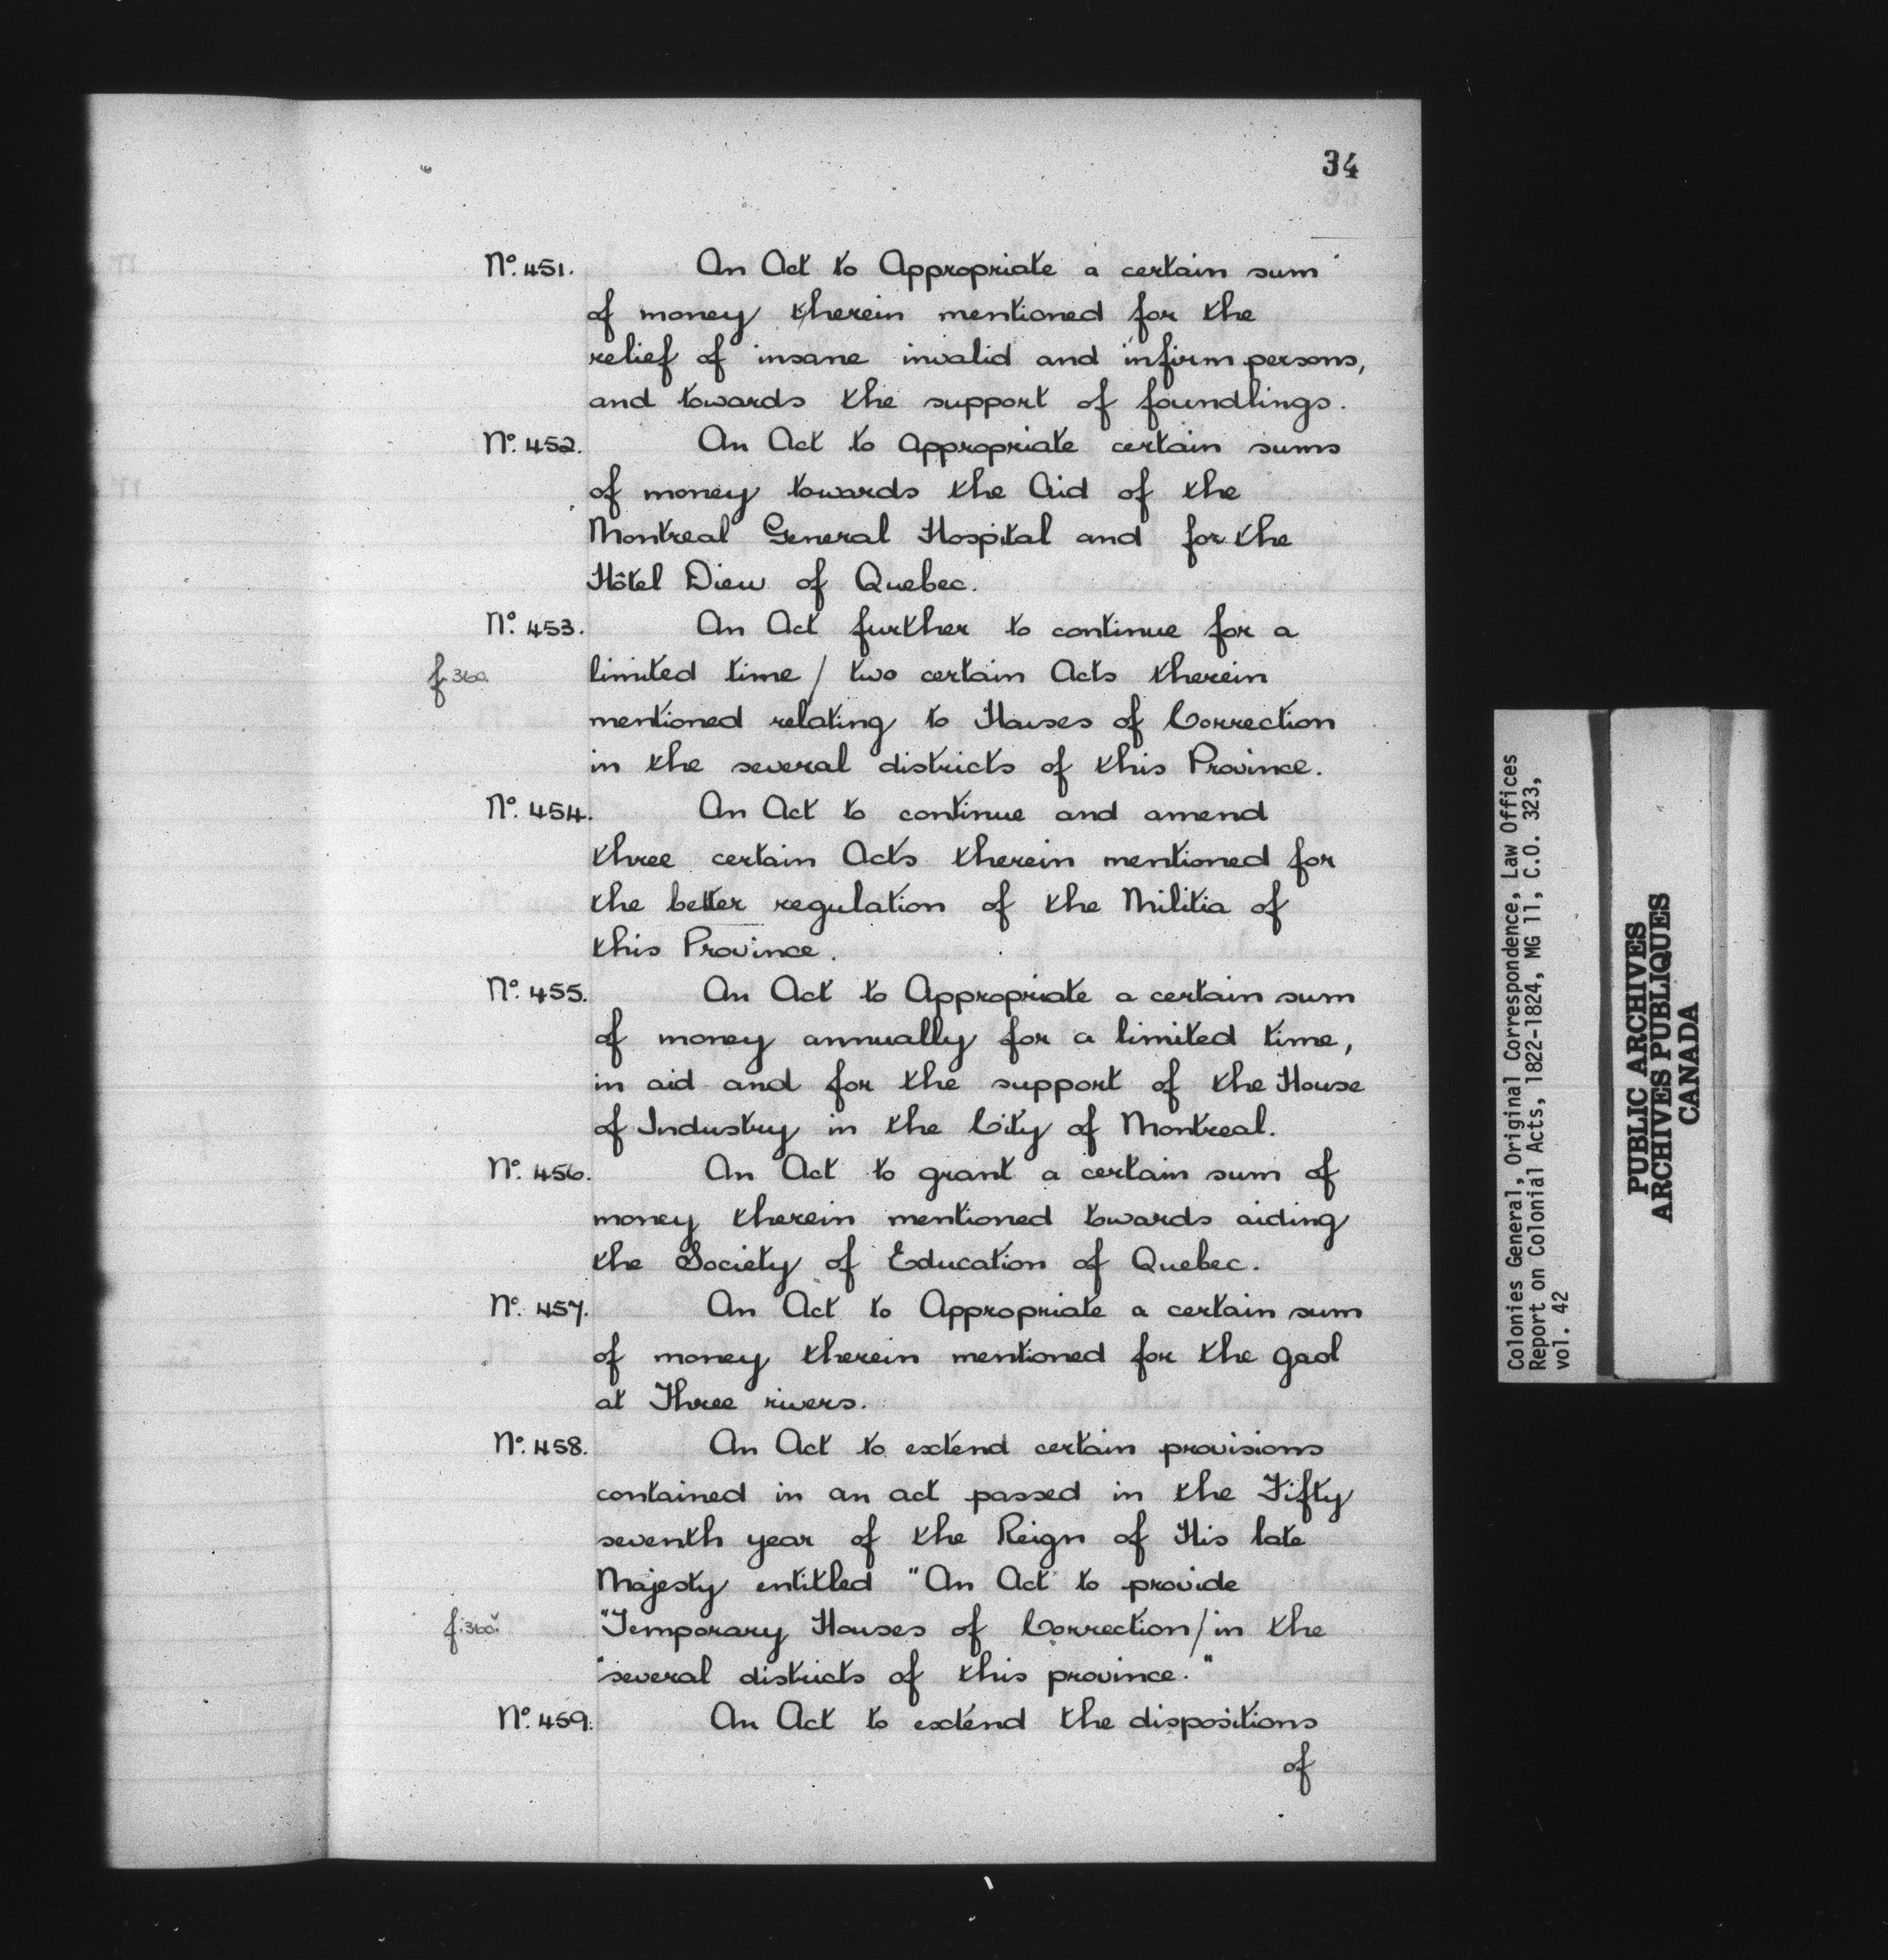 34
No. 451. An Act to Appropriate a certain sum
of money therein mentioned for the
relief of insane invalid and infirm persons,
and towards the support of foundlings.
No. 452. An Act to appropriate certain sums
of money towards the Aid of the
Montreal General Hospital and for the
Hôtel Dieu of Quebec.
No. 453. An Act further to continue for a
f. 360. limited time / two certain Acts therein
mentioned relating to Houses of Correction
in the several districts of this Province.
No. 454. An Act to continue and amend
three certain Acts therein mentioned for
the better regulation of the Militia of
this Province.
No. 455. An Act to Appropriate a certain sum
of money annually for a limited time,
in aid and for the support of the House
of Industry in the City of Montreal.
No. 456. An Act to grant a certain sum of
money therein mentioned towards aiding
the Society of Education of Quebec.
No. 457. An Act to Appropriate a certain sum
of money therein mentioned for the gaol
at Three rivers.
No. 458. An Act to extend certain provisions
contained in an act passed in the Fifty
seventh year of the Reign of His late
Majesty entitled "An Act to provide
f. 360v. "Temporary Houses of Correction / in the
"several districts of this province."
No. 459. An Act to extend the dispositions
of
Colonies General, Original Correspondence, Law Offices
Report on Colonial Acts, 1822-1824, MG 11, C.O. 323,
vol. 42
PUBLIC ARCHIVES
ARCHIVES PUBLIQUES
CANADA